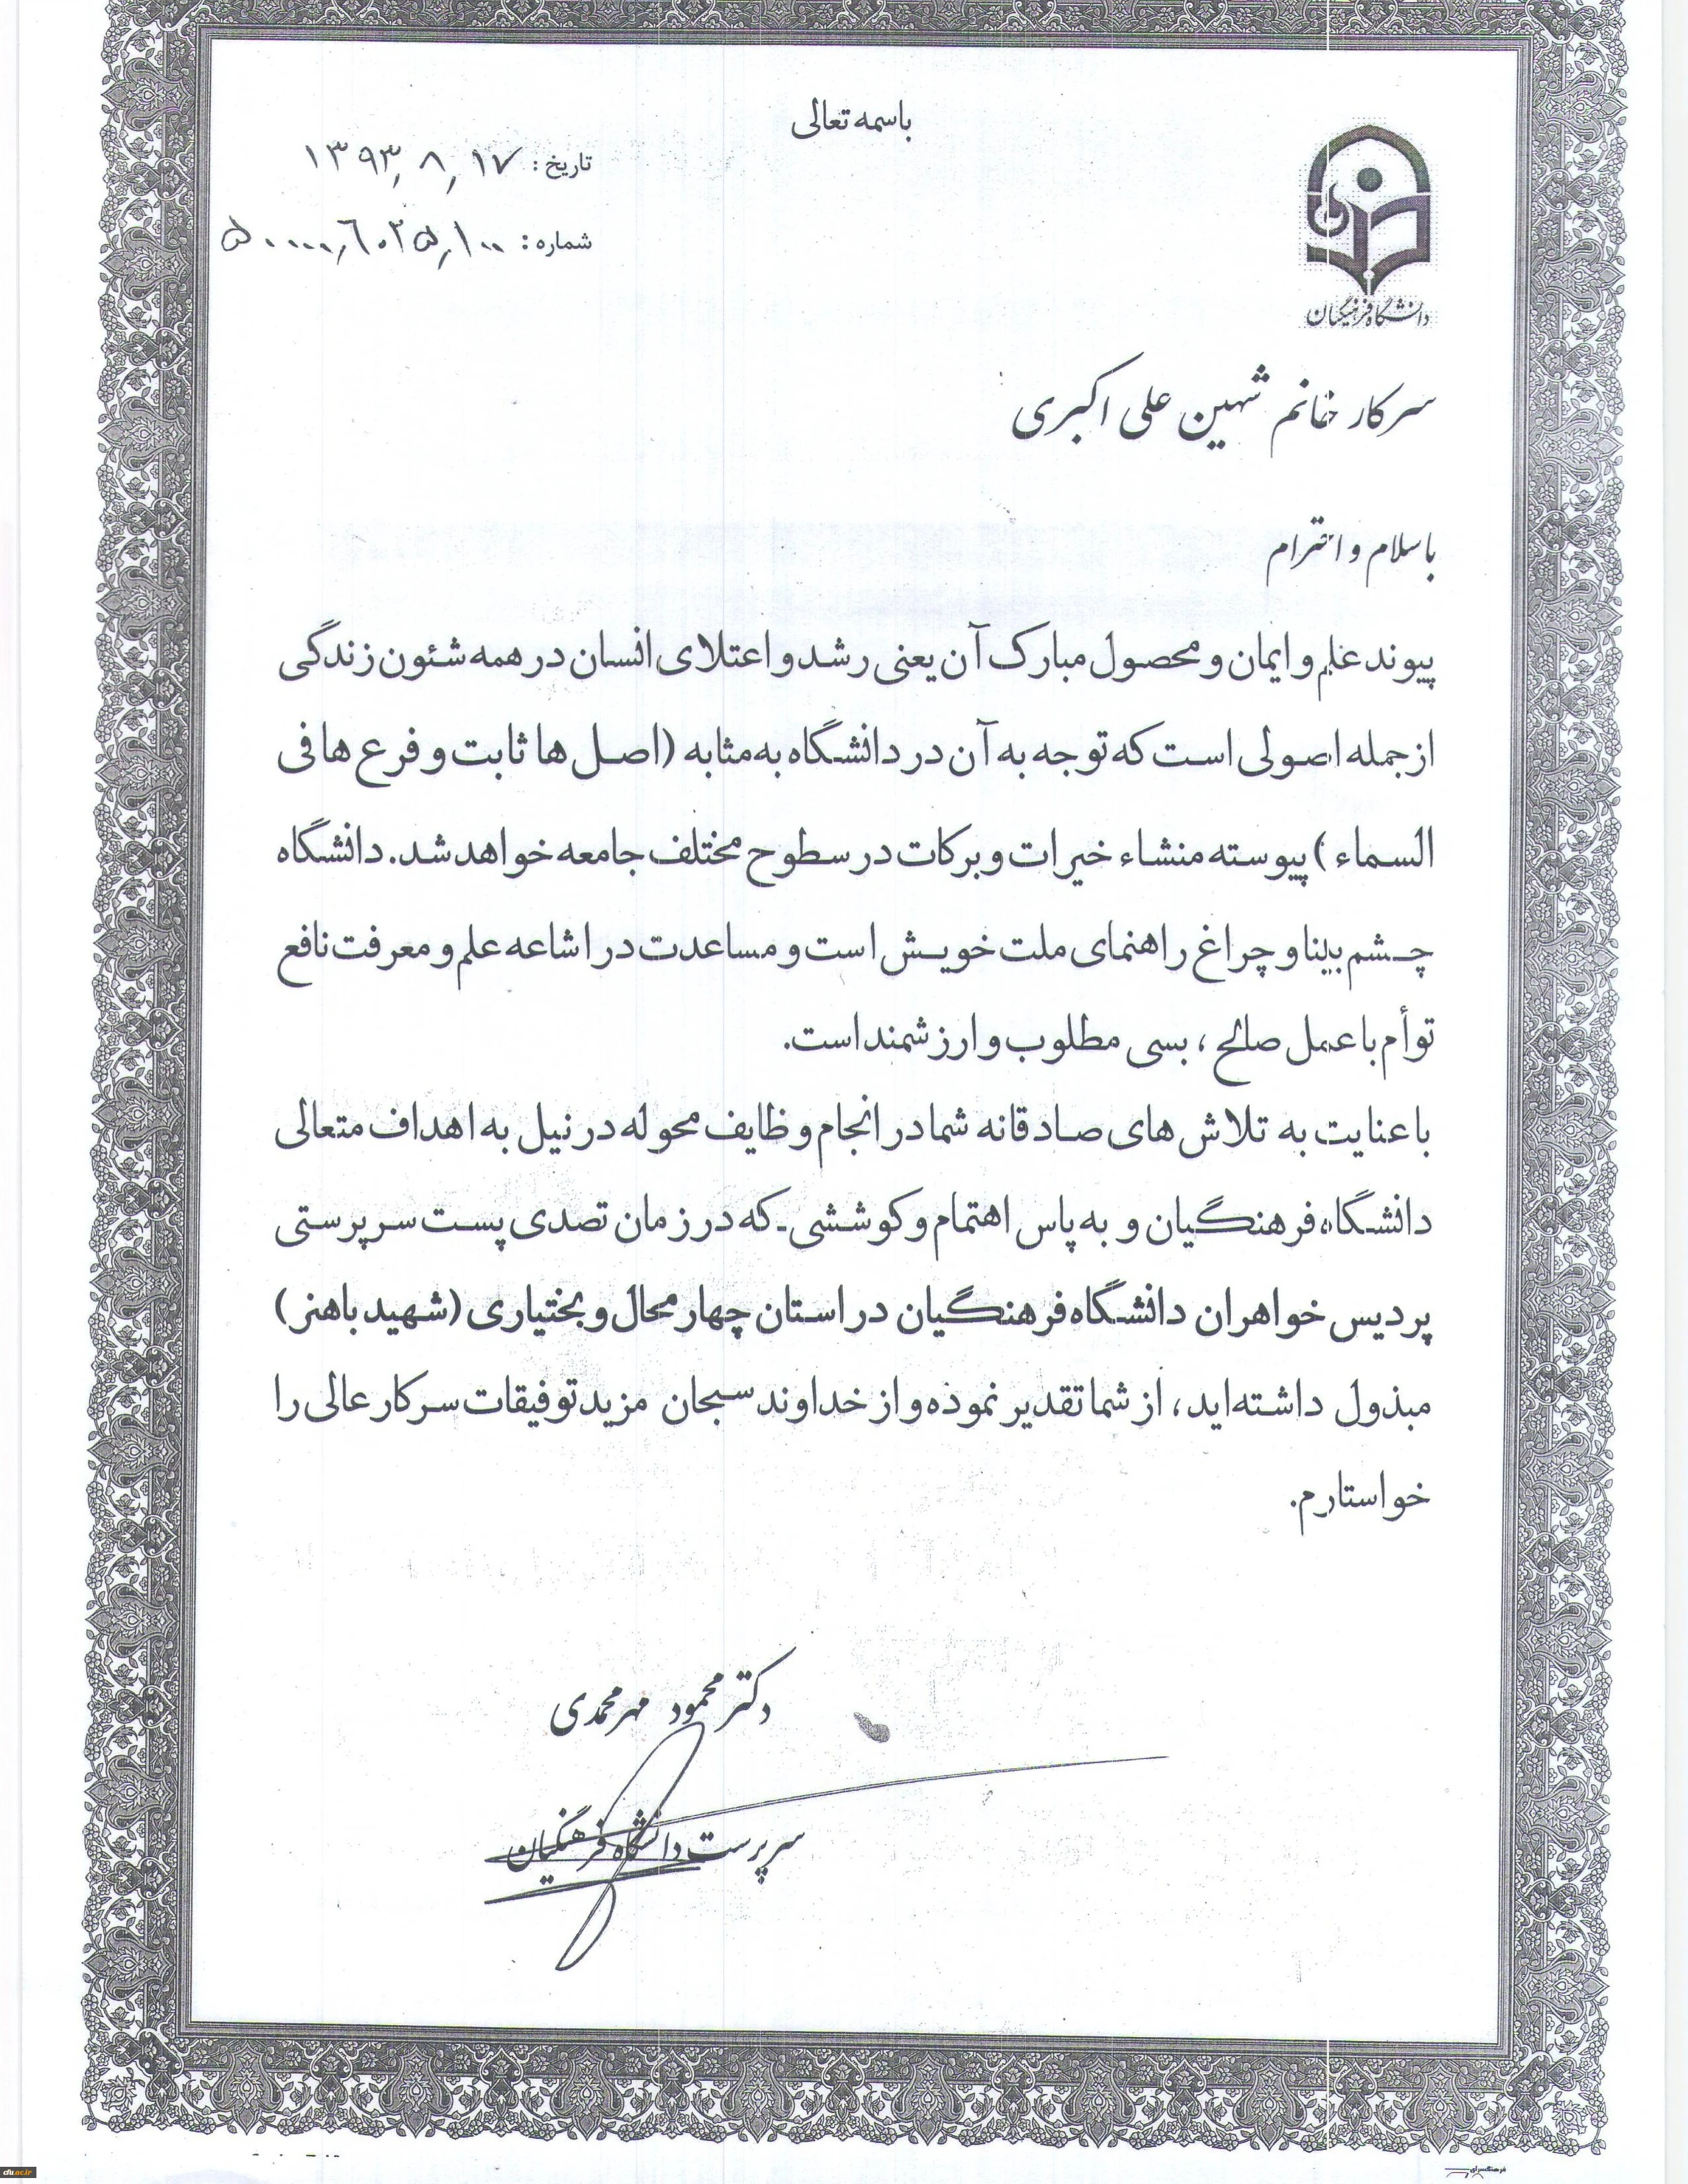 باسمه تعالی
تاریخ: ۱۳۹۳٫۸٫۱۷
شماره: ۵۰۰۰۰٫۶۰۲۵٫۱۰۰
دانشگاه فرهنگیان
سرکار خانم شهین علی اکبری
با سلام و احترام
پیوند علم و ایمان و محصول مبارک آن یعنی رشد و اعتلای انسان در همه شئون زندگی
از جمله اصولی است که توجه به آن در دانشگاه به مثابه (اصل ها ثابت و فرع ها فی
السماء) پیوسته منشاء خیرات و برکات در سطوح مختلف جامعه خواهد شد. دانشگاه
چشم بینا و چراغ راهنمای ملت خویش است و مساعدت در اشاعه علم و معرفت نافع
توأم با عمل صالح، بسی مطلوب و ارزشمند است.
با عنایت به تلاش های صادقانه شما در انجام وظایف محوله در نیل به اهداف متعالی
دانشگاه فرهنگیان و به پاس اهتمام و کوششی که در زمان تصدی پست سرپرستی
پردیس خواهران دانشگاه فرهنگیان در استان چهارمحال و بختیاری (شهید باهنر)
مبذول داشته اید، از شما تقدیر نموده و از خداوند سبحان مزید توفیقات سرکار عالی را
خواستارم.
دکتر محمود مهرمحمدی
سرپرست دانشگاه فرهنگیان
cfu.ac.ir